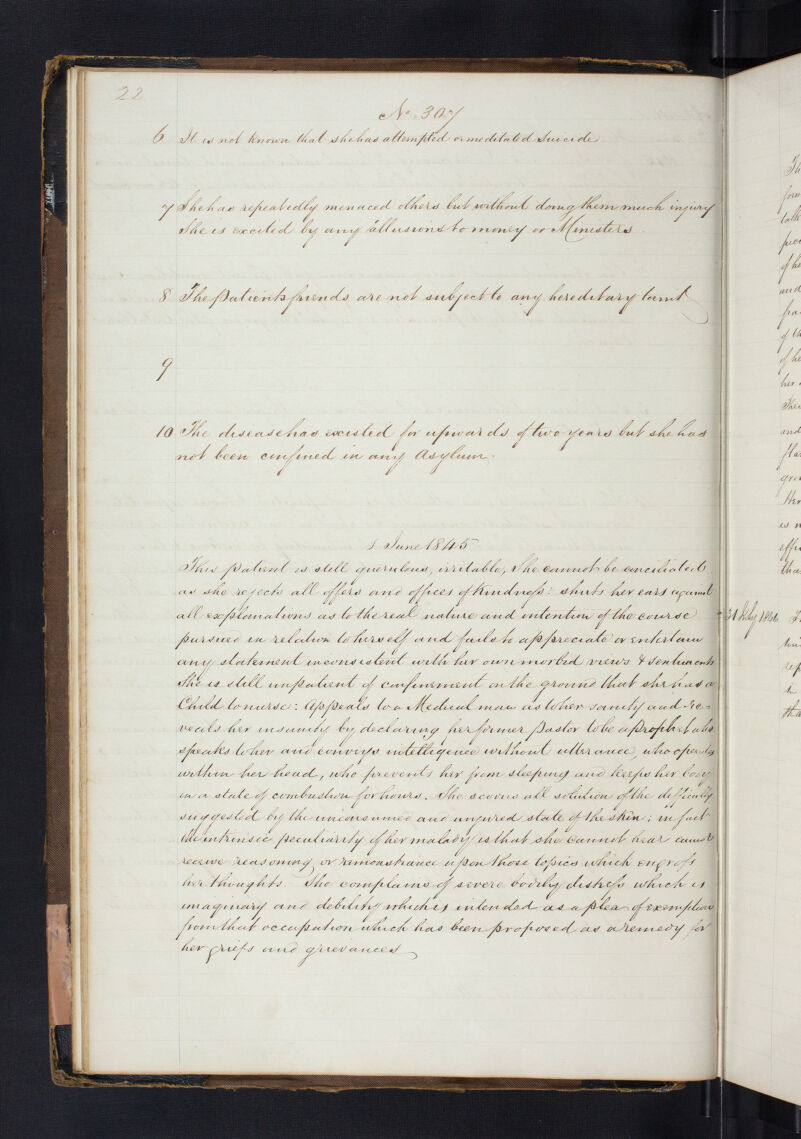 22
No. 307
6 It is not known that she has attempted or meditated Suicide
7 She has repeatedly menaced others but without doing them much injury
She is excited by any allusions to money or Ministers.
8 The Patients friends are not subject to any hereditary taint
9
10 The disease has existed for upwards of two years but she has
not been confined in any Asylum.
June 1845
This patient is still querulous, irritable; She cannot be conciliated
as she rejects all offers and offices of Kindness: shuts her ears against
all explanations as to the real nature and intention of the course
pursued in relation to herself and fails to appreciate or entertain
any statement inconsistent with her own morbid views & sentiments
She is still impatient of confinement on the ground that she has a
Child to nurse: Appeals to a Medical man as to her sanity and re=
veals her insanity by declaring her former Pastor to be a Prophet who
speaks to her and conveys intelligence without utterance, who operates
within her head, who prevents her from sleeping and keeps her body
in a state of combustion for hours. She scorns all solution of the difficulty
suggested by the unconsumed and unjured state of the skin; in fact
the intrinsic peculiarity of her malady is that she cannot hear cannot
receive reasoning or remonstrance upon those topics which engross
her thoughts. She complains of severe bodily distress which is
imaginary and debility which is intended as a plea of exemption
from that occupation which has been proposed as a remedy for
her griefs and grievances
31 July